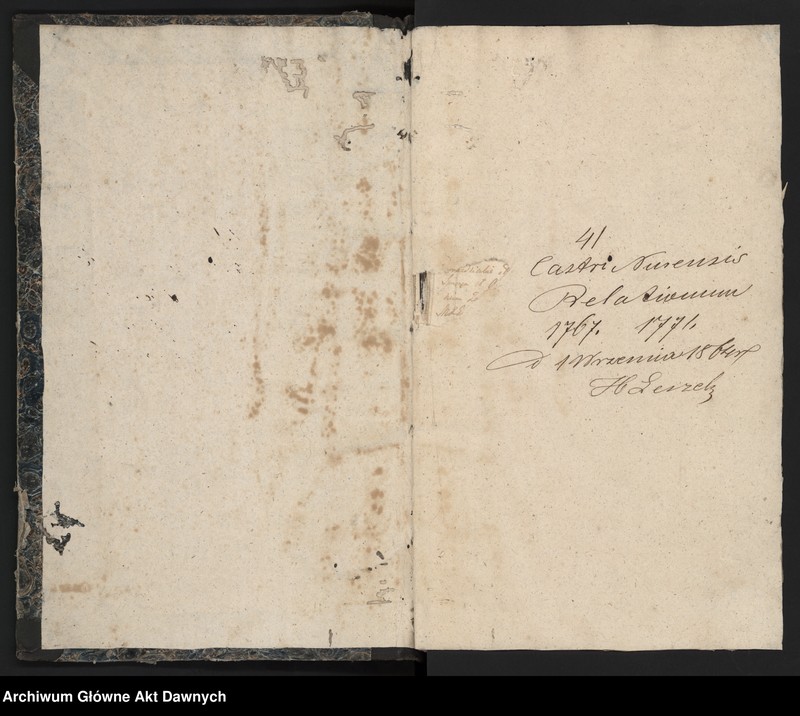 41
Castri Nurensis
Relationum
1767. 1771.
d 1 Września 1864 r
H Leszek
Archiwum Główne Akt Dawnych